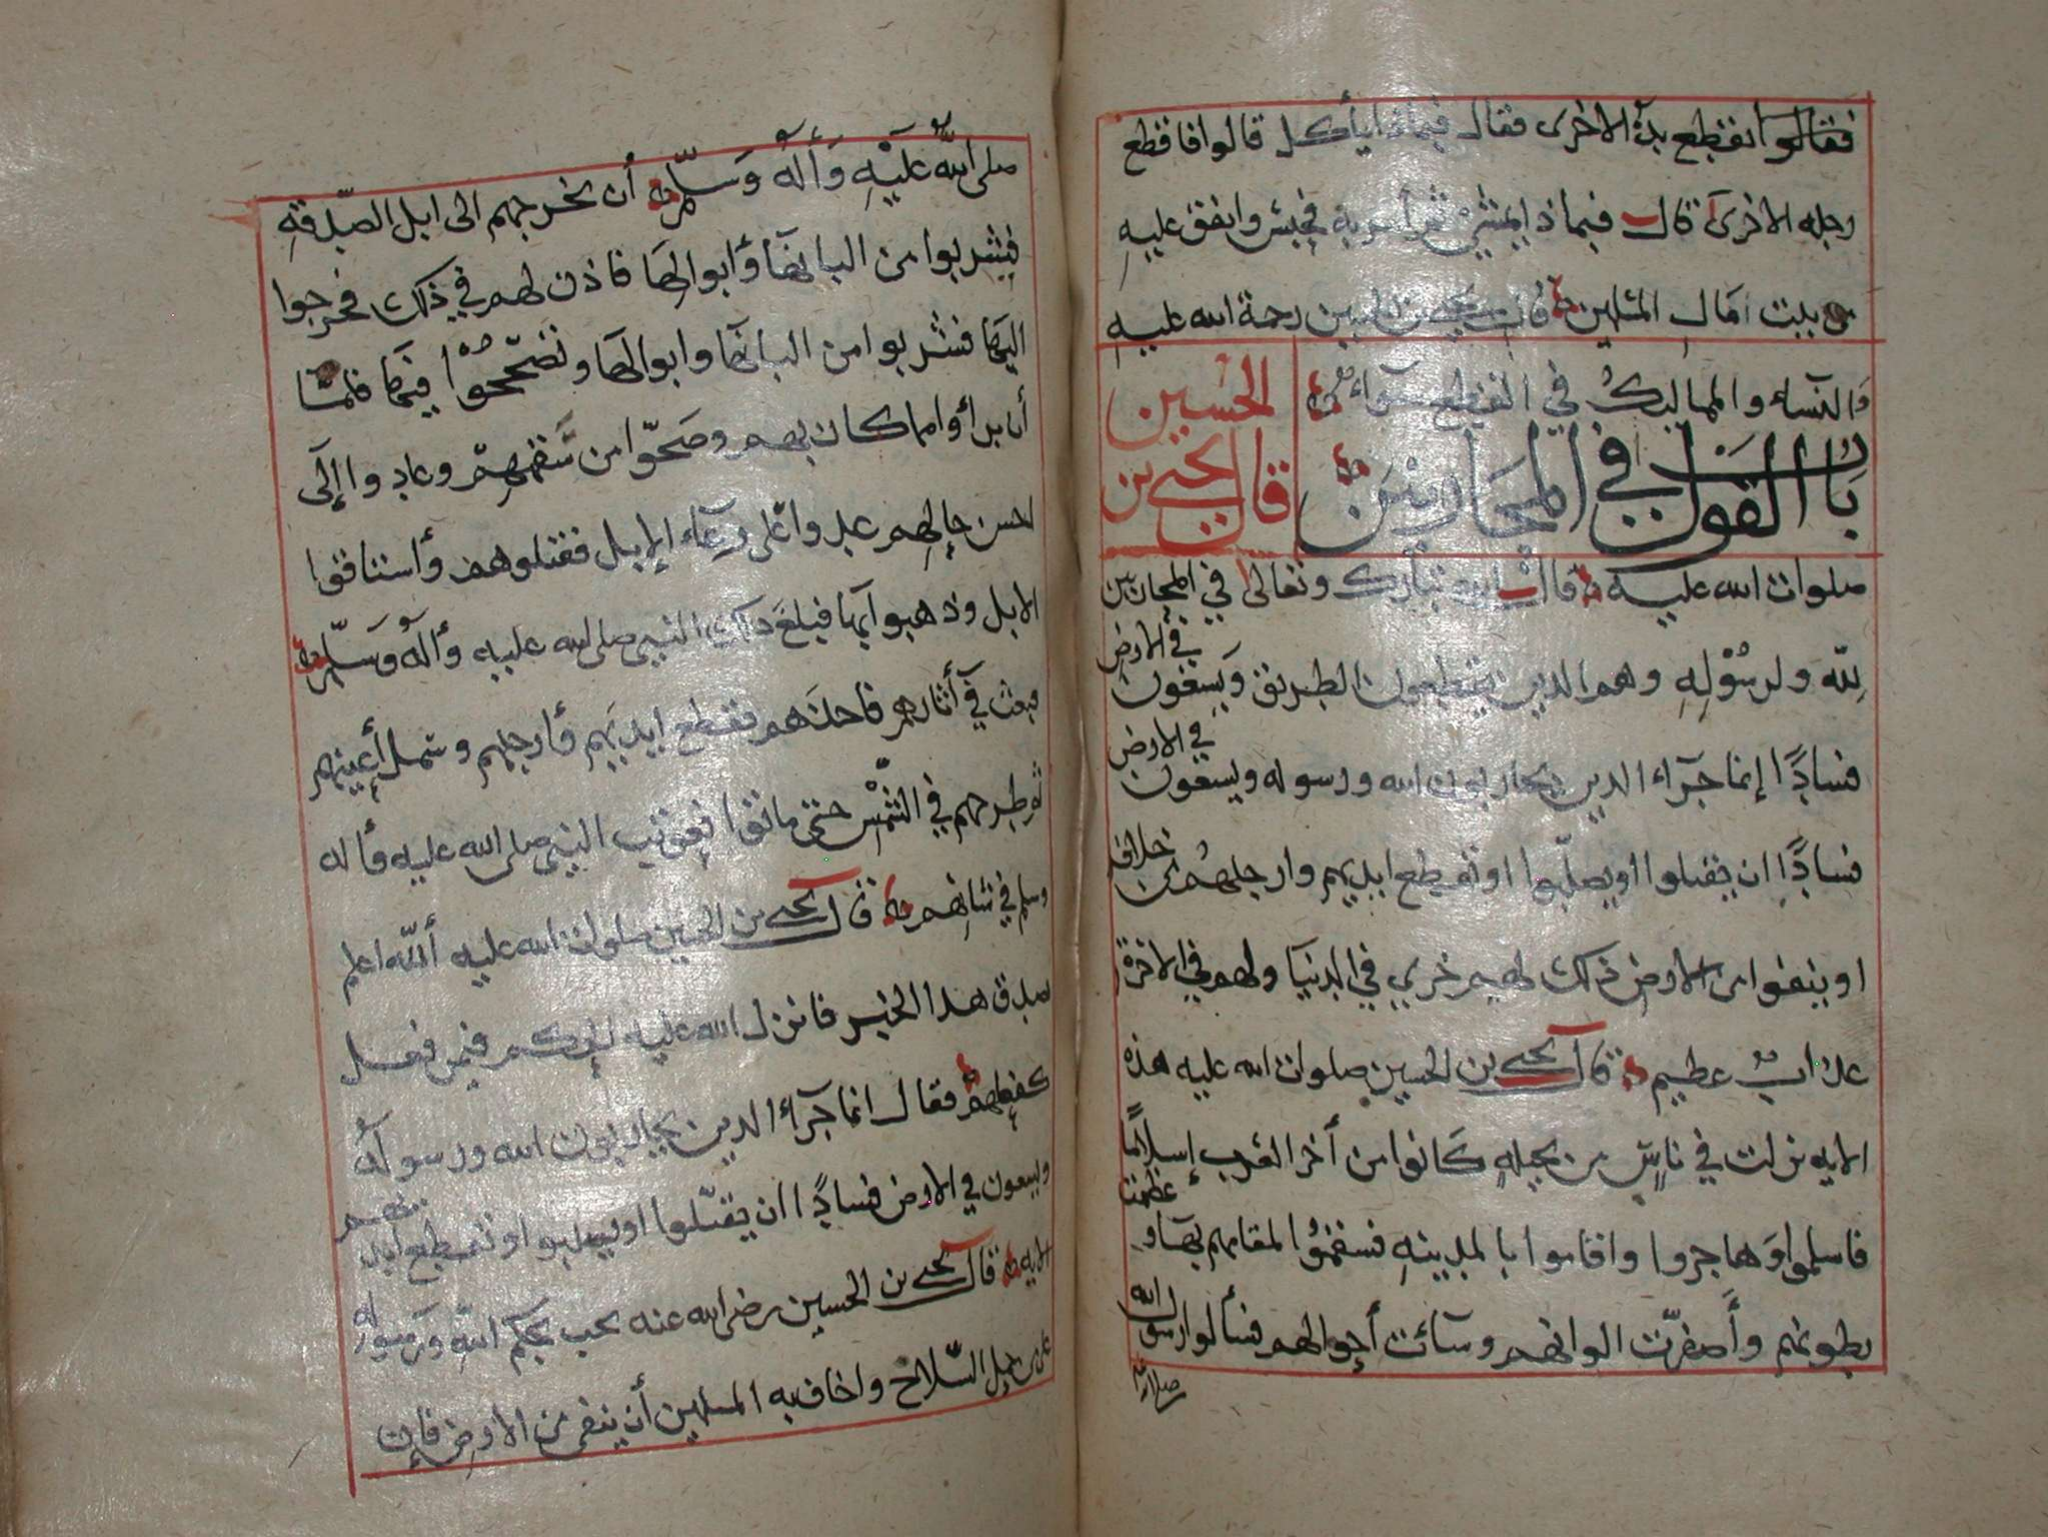 فقالوا انقطع يده الاخرى فقال فبماذا يأكل قالوا فاقطع
رجله الاخرى قال فبماذا يمشي ثم أمر به فحبس وانفق عليه
من بيت امال المسلمين قال يحيى بن الحسين رحمة الله عليه
والنساء والمماليك في القطع سواء
باب القول في المحاربين
قال يحيى بن
الحسين
صلوات الله عليه قال الله تبارك وتعالى في المحاربين
لله ولرسوله وهم الذين يقطعون الطريق ويسعون في الارض
فسادًا إنما جزآء الذين يحاربون الله ورسوله ويسعون في الارض
فسادًا ان يقتلوا او يصلبوا او تقطع ايديهم وارجلهم من خلاف
او ينفوا من الارض ذلك لهم خزي في الدنيا ولهم في الاخرة
عذاب عظيم قال يحيى بن الحسين صلوات الله عليه هذه
الايه نزلت في ناس من بجيله كانوا من أخر العرب إسلامًا
فاسلموا وهاجروا واقاموا بالمدينه فسقموا لمقامهم بها و عظمت
بطونهم وأصفرّت الوانهم وسآئت أحوالهم فسألوا رسول الله
صلى الله عليه وأله وسلم أن يخرجهم الى ابل الصدقه
فيشربوا من البانها وأبوالها فاذن لهم في ذلك فخرجوا
اليها فشربوا من البانها وابوالها وتصححوا فيها فلما
أن برأوا مما كان بهم وصحّوا من سقمهم وعادوا إلى
احسن حالهم عدوا على رعاء الإبل فقتلوهم وأستاقوا
الابل وذهبوا بها فبلغ ذلك النبي صلى الله عليه وأله وسلم
فبعث في أثارهم فاخذهم فقطع ايديهم وأرجلهم وسمل أعينهم
ثم طرحهم في الشمس حتى ماتوا فعوتب النبي صلى الله عليه وأله
وسلم في شانهم قال يحيى بن الحسين صلوات الله عليه ألله اعلم
بصدق هذا الخبر فانزل الله عليه الحكم فيمن فعل
كفعلهم فقال انما جزآء الذين يحاربون الله ورسوله
ويسعون في الارض فسادًا ان يقتّلوا او يصلبوا او تقطع ايديهم
الايه قال يحيى بن الحسين رضي الله عنه يجب بحكم الله ورسوله
على من حمل السّلاح واخاف به المسلمين أن ينفى من الارض فإن